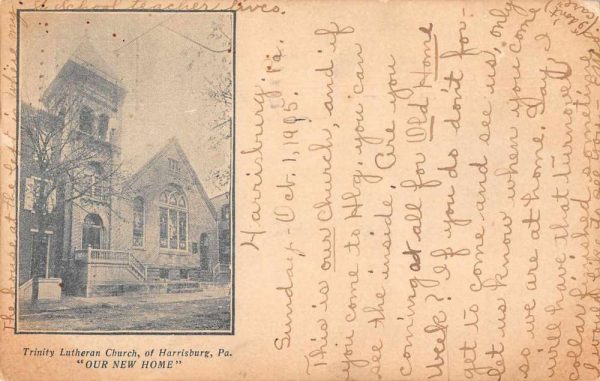 Trinity Lutheran Church, of Harrisburg, Pa.
"OUR NEW HOME"
Harrisburg, Pa.
Sunday - Oct. 1, 1905.
This is our Church, and if
you come to Hbg, you can
see the inside. Are you
coming at all for Old Home
Week? If you do don't for-
get to come and see us, only
let us know when you come
so we are at home. Say I
will have that turnover
collar finished sometime,
school teacher lives.
The house at the